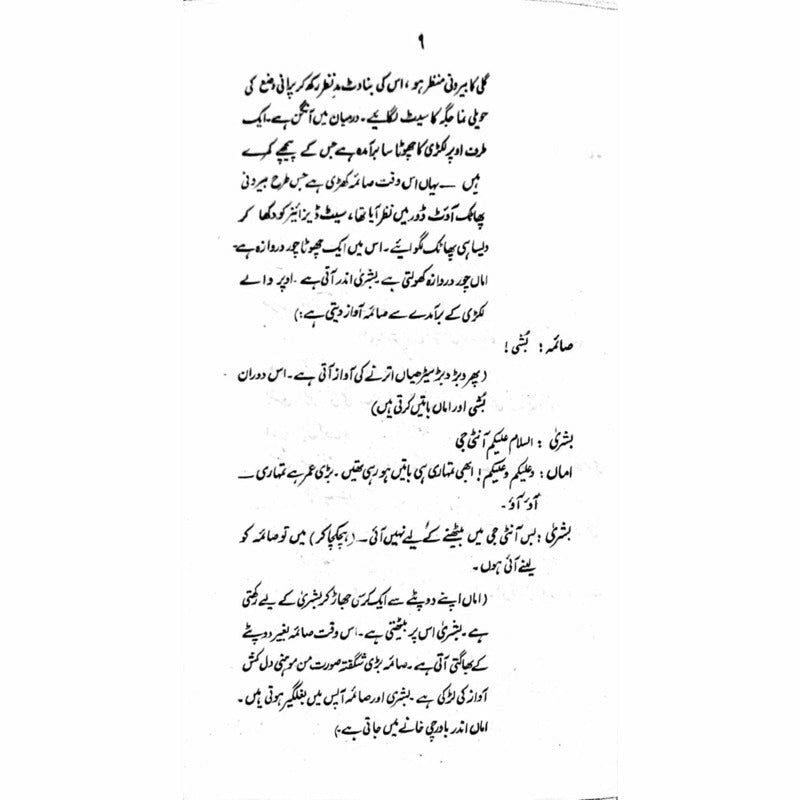 ۹
گلی کا بیرونی منظر ہو، اس کی بناوٹ مدِ نظر رکھ کر پرانی وضع کی
حویلی نما جگہ کا سیٹ لگائیے۔ درمیان میں آنگن ہے۔ ایک
طرف اوپر لکڑی کا چھوٹا سا برآمدہ ہے جس کے پیچھے کمرے
ہیں ــ یہاں اس وقت صائمہ کھڑی ہے جس طرح بیرونی
پھاٹک آؤٹ ڈور میں نظر آیا تھا، سیٹ ڈیزائینر کو دکھا کر
ویسا ہی پھاٹک لگوائیے۔ اس میں ایک چھوٹا چور دروازہ ہے۔
اماں چور دروازہ کھولتی ہے بشریٰ اندر آتی ہے۔ اوپر والے
لکڑی کے برآمدے سے صائمہ آواز دیتی ہے:)
صائمہ: بُشی!
(پھر دبڑ دبڑ سیڑھیاں اترنے کی آواز آتی ہے۔ اس دوران
بُشی اور اماں باتیں کرتی ہیں)
بشریٰ: السلام علیکم آنٹی جی
اماں: وعلیکم وعلیکم! ابھی تمہاری ہی باتیں ہو رہی تھیں۔ بڑی عمر ہے تمہاری ــ
آؤ آؤ۔
بشریٰ: بس آنٹی جی میں بیٹھنے کے لیے نہیں آئی ــ (ہچکچا کر) میں تو صائمہ کو
لینے آئی ہوں۔
(اماں اپنے دوپٹے سے ایک کرسی جھاڑ کر بشریٰ کے لیے رکھتی
ہے۔ بشریٰ اس پر بیٹھتی ہے۔ اس وقت صائمہ بغیر دوپٹے
کے بھاگتی آتی ہے۔ صائمہ بڑی شگفتہ صورت من موہنی دل کش
آواز کی لڑکی ہے۔ بشریٰ اور صائمہ آپس میں بغلگیر ہوتی ہیں۔
اماں اندر باورچی خانے میں جاتی ہے۔)